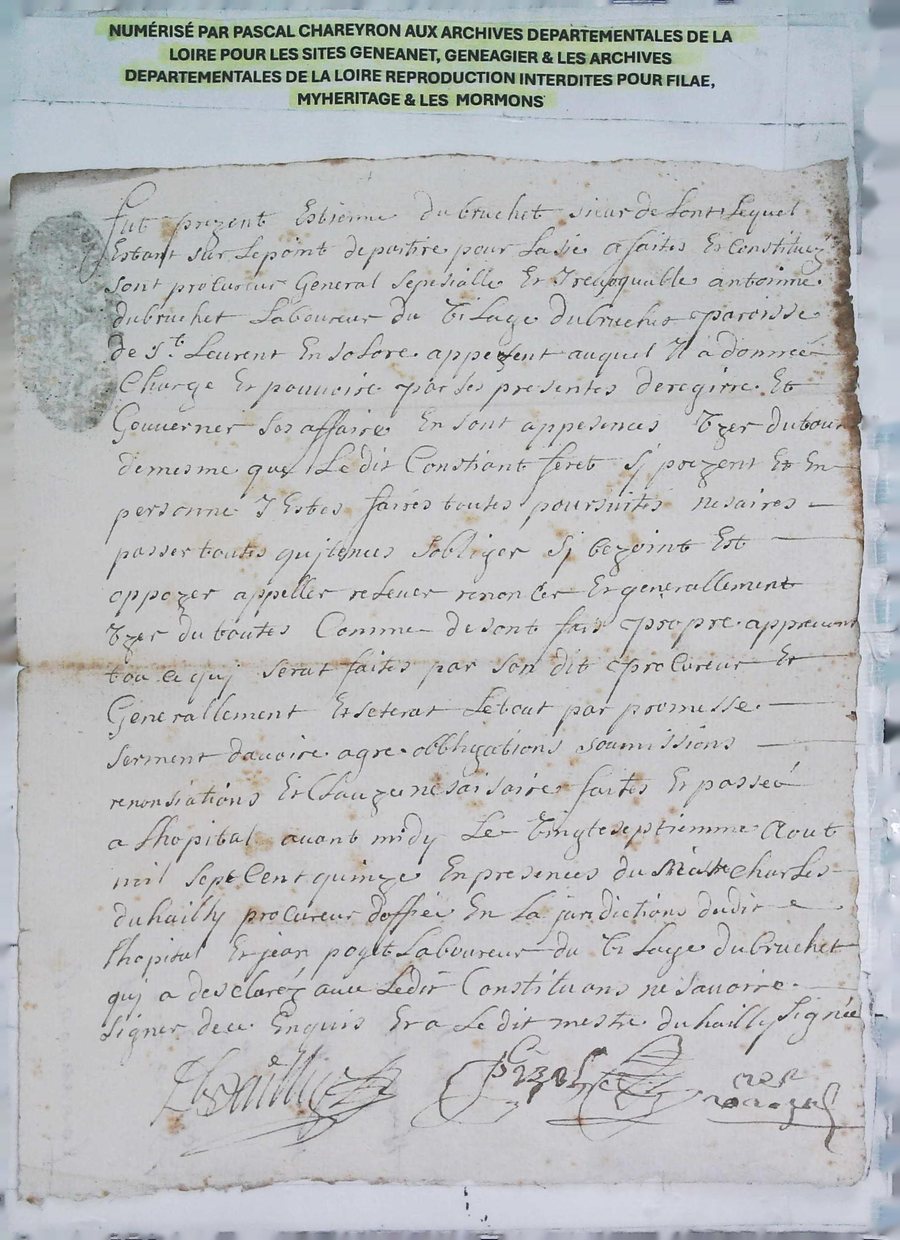 NUMÉRISÉ PAR PASCAL CHAREYRON AUX ARCHIVES DEPARTEMENTALES DE LA
LOIRE POUR LES SITES GENEANET, GENEAGIER & LES ARCHIVES
DEPARTEMENTALES DE LA LOIRE REPRODUCTION INTERDITES POUR FILAE,
MYHERITAGE & LES MORMONS
fut prezent Estienne dubruchet sieur de Lequel
Estant sur Lepoint departire pour a faites Et Constituez
sont procureur General sepesialle Et Irevoquable antoinne
dubruchet Laboureur du vilage dubruchet paroisse
de St. Leurent En solore appezent auquel Il a donneé
Charge Et pouvoire par ses presentes deregirre Et
Gouverner ses affaire En sont appesences Vzer du tout
demesme que Le dit Constiant feret sj prezent Et En
personne Estes faires toutes poursuites nesaires
passer toutes quitences sobliger sj bezoint Est
oppozer appeller relever renoncer Et generallement
Vzer du toutes Comme de sont fais propre appreuvant
tou ce quj serat faites par son dit procureur Et
Generallement Et seterat Letout par promesse
serment davoire agre obbligations soumissions
renonsiations Et Clauze nesaisaire faites Et passeé
a Lhopital avant midy Le Vingteseptiemme Aout
mil sept Cent quinze En presences du Charles
duhailly procureur doffice En La juridictions dudit
Lhopital Et jean poyet Laboureur du vilage dubruchet
quj a desclaréz avec Ledit Constituans ne savoire
signer de ce Enquis Et a Le dit mestre duhailly signée